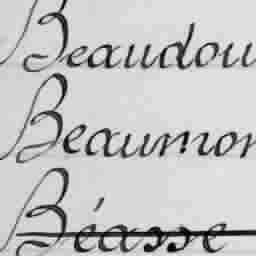 Beaudou
Beaumon
Béasse